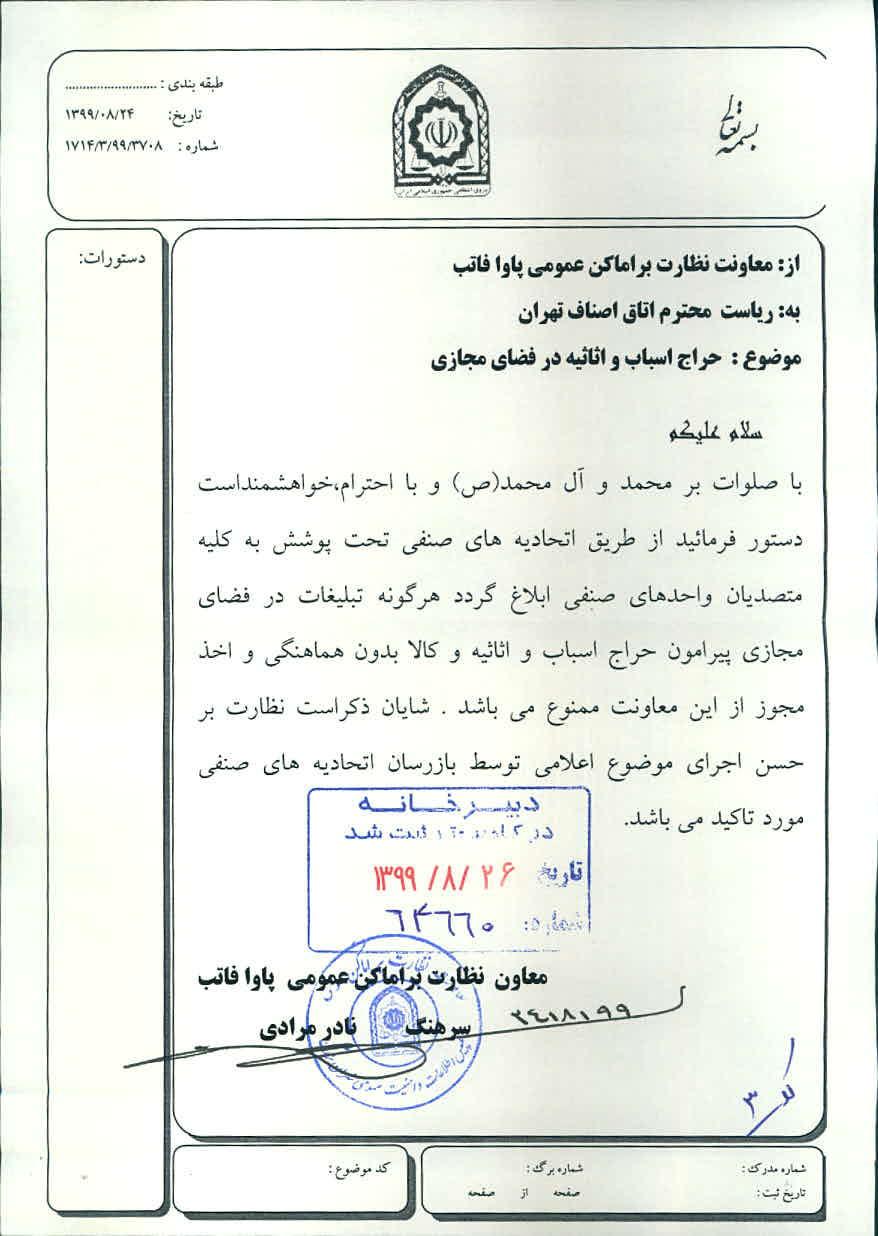 بسمه تعالی
طبقه بندی : ..........................
تاریخ: ۱۳۹۹/۰۸/۲۴
شماره : ۱۷۱۴/۳/۹۹/۳۷۰۸
نیروی انتظامی جمهوری اسلامی ایران
دستورات:
از: معاونت نظارت براماکن عمومی پاوا فاتب
به: ریاست محترم اتاق اصناف تهران
موضوع : حراج اسباب و اثاثیه در فضای مجازی
سلام علیکم
با صلوات بر محمد و آل محمد(ص) و با احترام،خواهشمنداست
دستور فرمائید از طریق اتحادیه های صنفی تحت پوشش به کلیه
متصدیان واحدهای صنفی ابلاغ گردد هرگونه تبلیغات در فضای
مجازی پیرامون حراج اسباب و اثاثیه و کالا بدون هماهنگی و اخذ
مجوز از این معاونت ممنوع می باشد . شایان ذکراست نظارت بر
حسن اجرای موضوع اعلامی توسط بازرسان اتحادیه های صنفی
مورد تاکید می باشد.
دبیرخانه
در ثبت شد
تاریخ ۱۳۹۹/۸/۲۶
شماره: ۶۴۶۶۰
معاون نظارت براماکن عمومی پاوا فاتب
سرهنگ نادر مرادی
نظارت بر اماکن
شماره مدرک :
شماره برگ :
تاریخ ثبت :
صفحه از صفحه
کد موضوع :